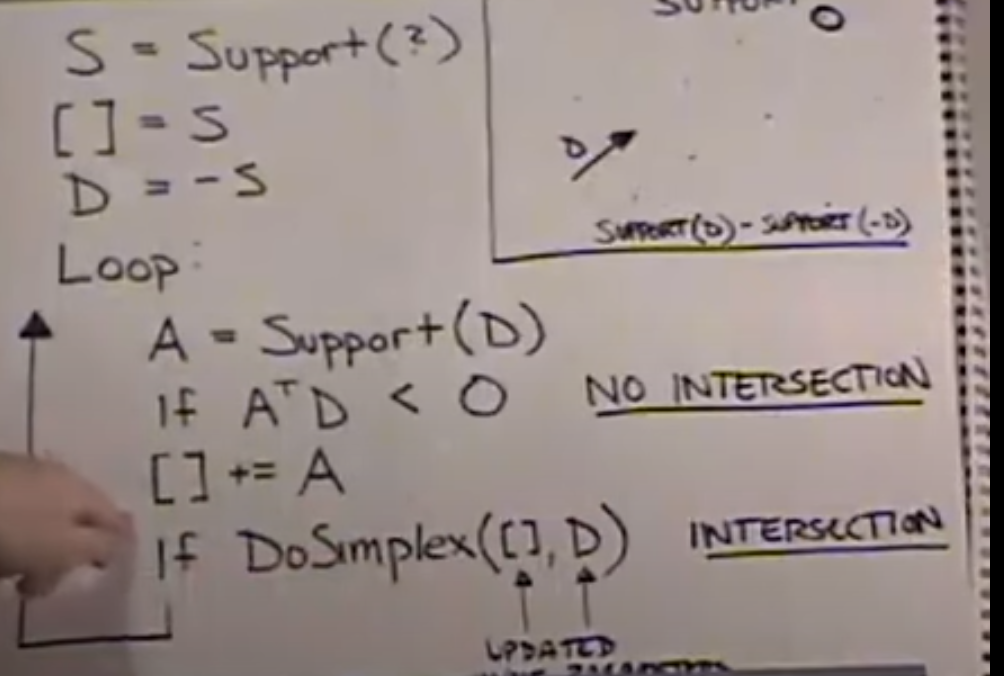 S = Support(?)
[] = S
D = -S
Loop:
A = Support(D)
If AᵀD < O
NO INTERSECTION
[] += A
If DoSimplex([], D)
INTERSECTION
UPDATED
SUPPORT
D
SUPPORT(D) - SUPPORT(-D)